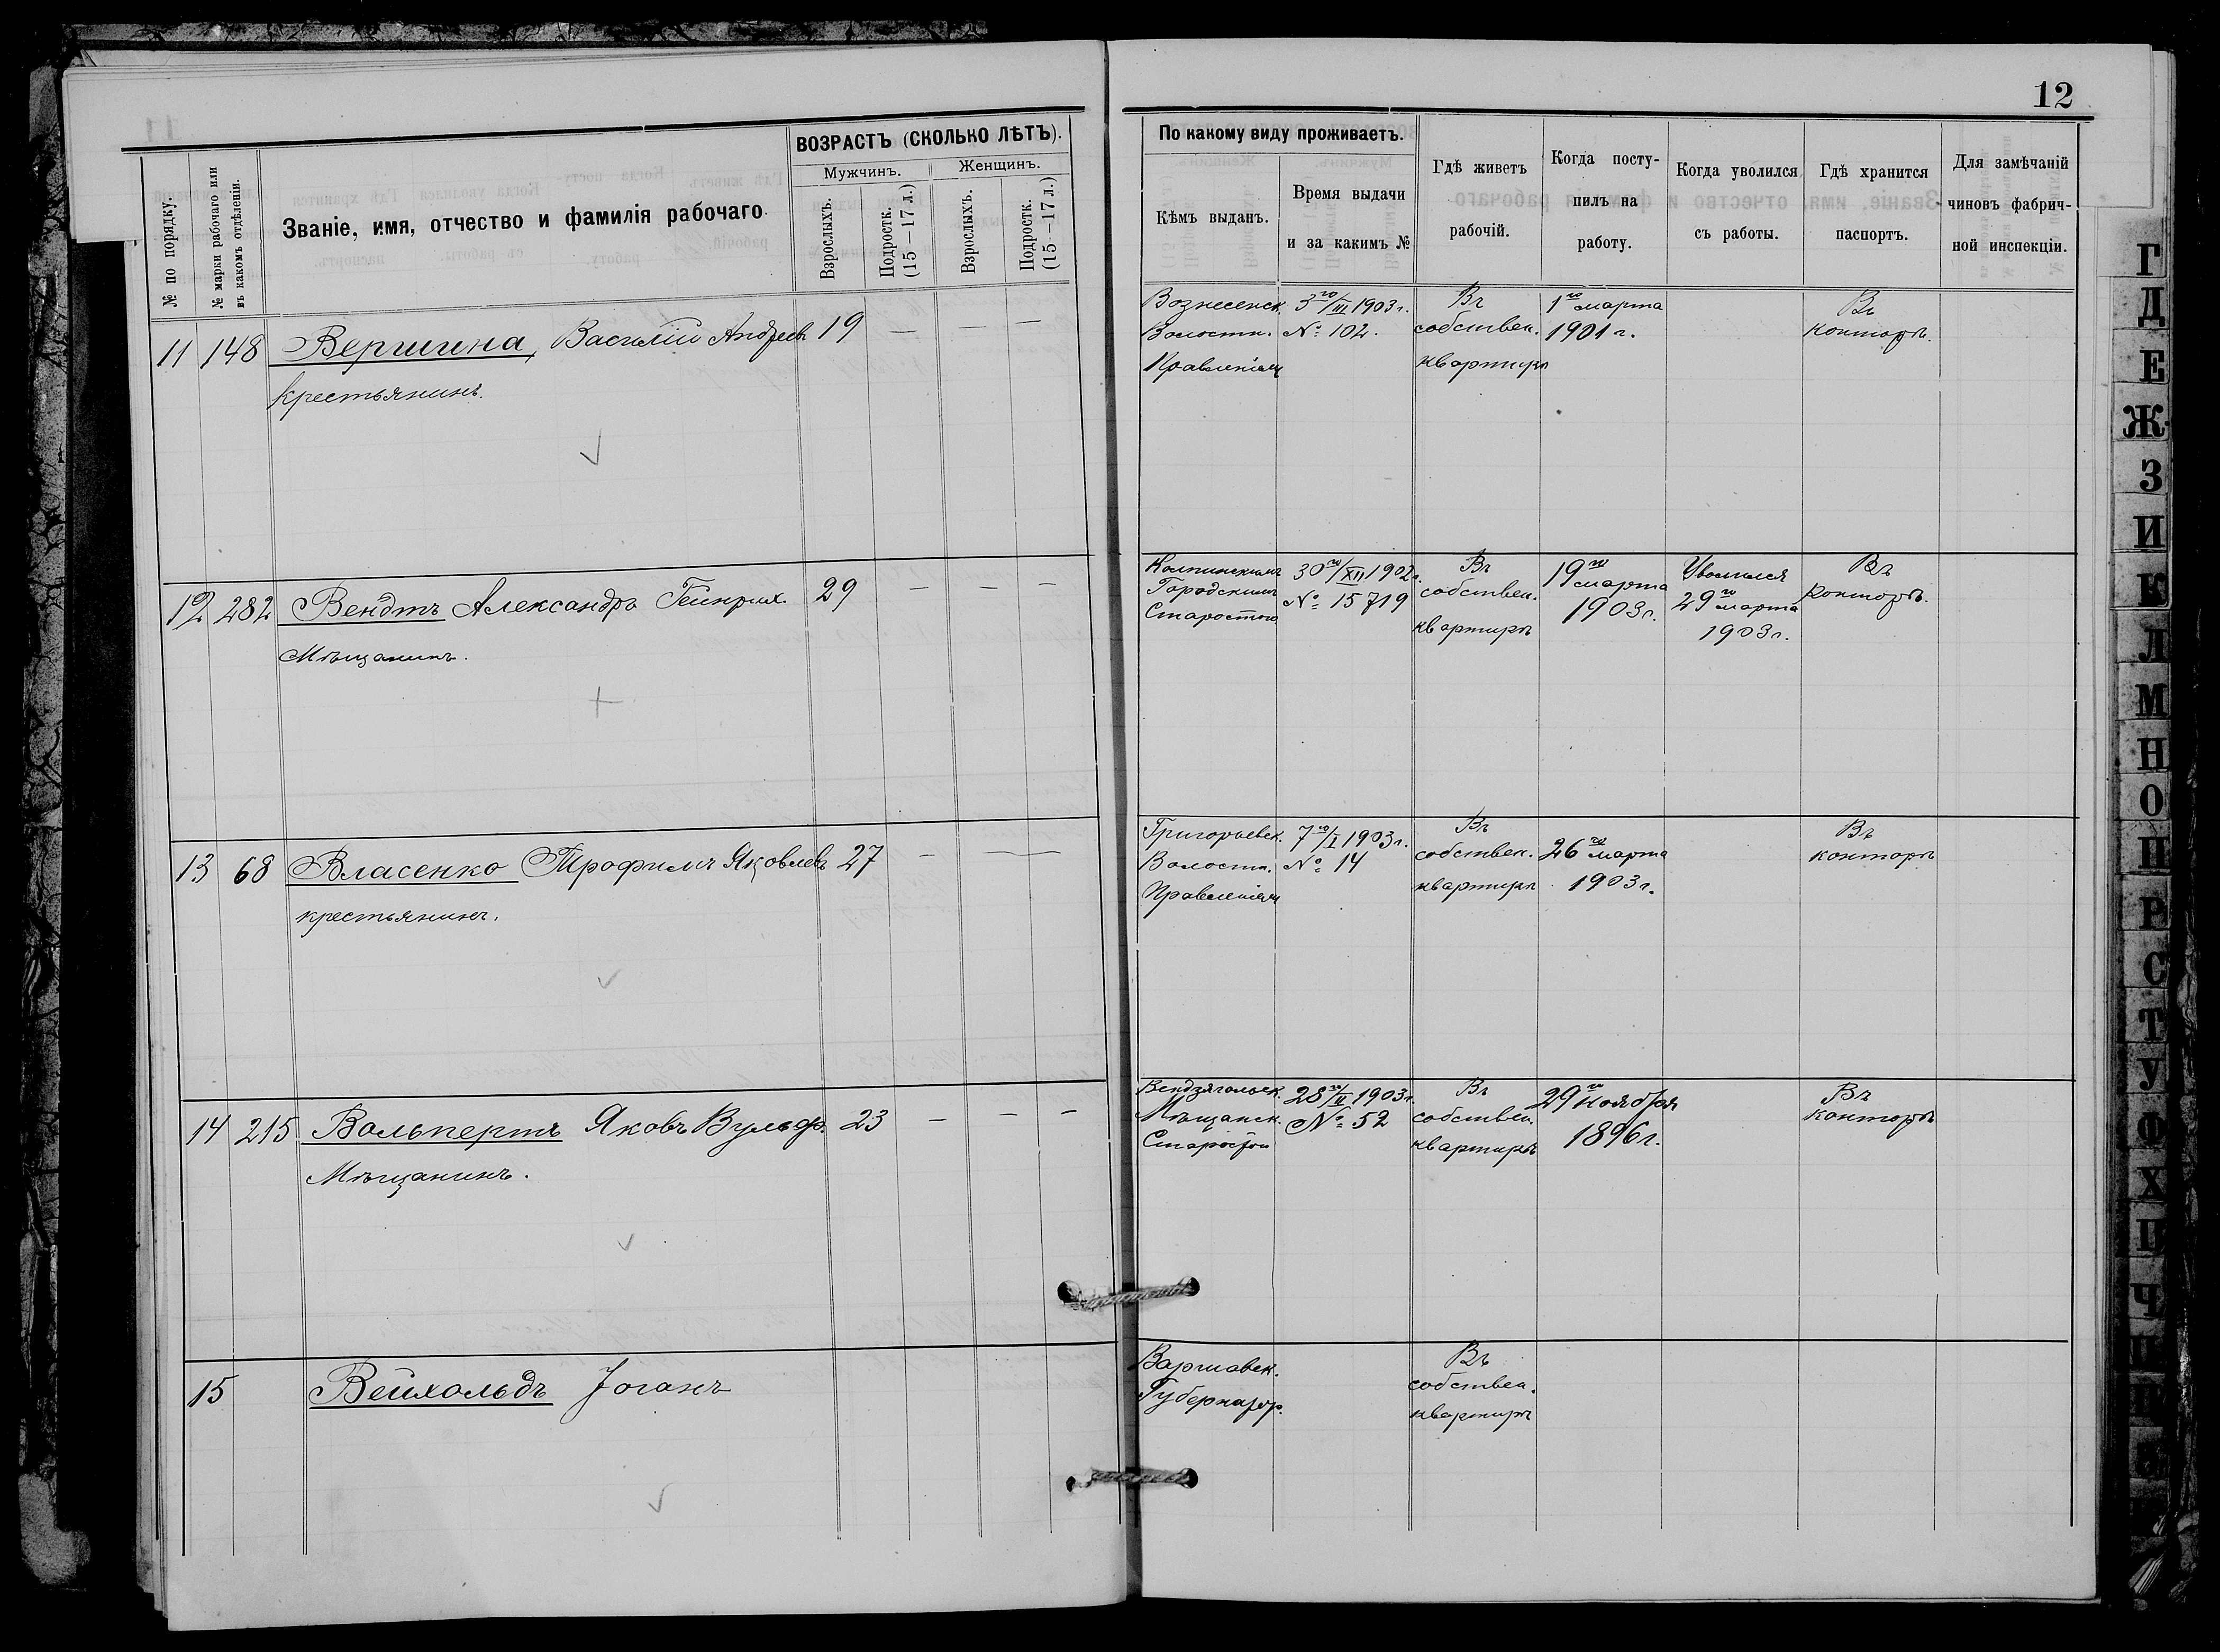 12
ВОЗРАСТЪ (СКОЛЬКО ЛѢТЪ).
Мужчинъ. Женщинъ.
№ по порядку.
№ марки рабочаго или
въ какомъ отдѣленіи.
Званіе, имя, отчество и фамилія рабочаго.
Взрослыхъ.
Подростк.
(15—17 л.)
Взрослыхъ.
Подростк.
(15—17 л.)
По какому виду проживаетъ.
Кѣмъ выданъ.
Время выдачи
и за какимъ №
Гдѣ живетъ
рабочій.
Когда посту-
пилъ на
работу.
Когда уволился
съ работы.
Гдѣ хранится
паспортъ.
Для замѣчаній
чиновъ фабрич-
ной инспекціи.
11 148 Вершина, Василій Андреев 19 — — —
крестьянинъ.
Вознесенск.
Волостн.
Правленіем
3го/III 1903 г.
№ 102.
Въ
собствен.
квартирѣ
1го марта
1901 г.
Въ
конторѣ.
12 282 Вендтъ Александръ Гейнрих. 29 — — —
Мѣщанинъ.
Городскимъ
Старостою
30го/XII 1902 г.
№ 15719
Въ
собствен.
квартирѣ
19го
марта
1903 г.
Уволился
29го
марта
1903 г.
Въ
конторѣ.
13 68 Власенко Трофимъ Яковлевъ 27 — —
крестьянинъ.
Григорьевск.
Волостн.
Правленіем
7го/I 1903 г.
№ 14
Въ
собствен.
квартирѣ
26го марта
1903 г.
Въ
конторѣ
14 215 Вольпертъ Яковъ Вульф. 23 — — —
Мѣщанинъ.
Вендзягольск.
Мѣщанск.
Старостой
28го/II 1903 г.
№ 52
Въ
собствен.
квартирѣ
29го ноября
1896 г.
Въ
конторѣ
15 Вейхольдъ Іоганъ
Варшавск.
Губернатор.
Въ
собствен.
квартирѣ
Г
Д
Е
Ж
З
И
К
Л
М
Н
О
П
Р
С
Т
У
Ф
Х
Ц
Ч